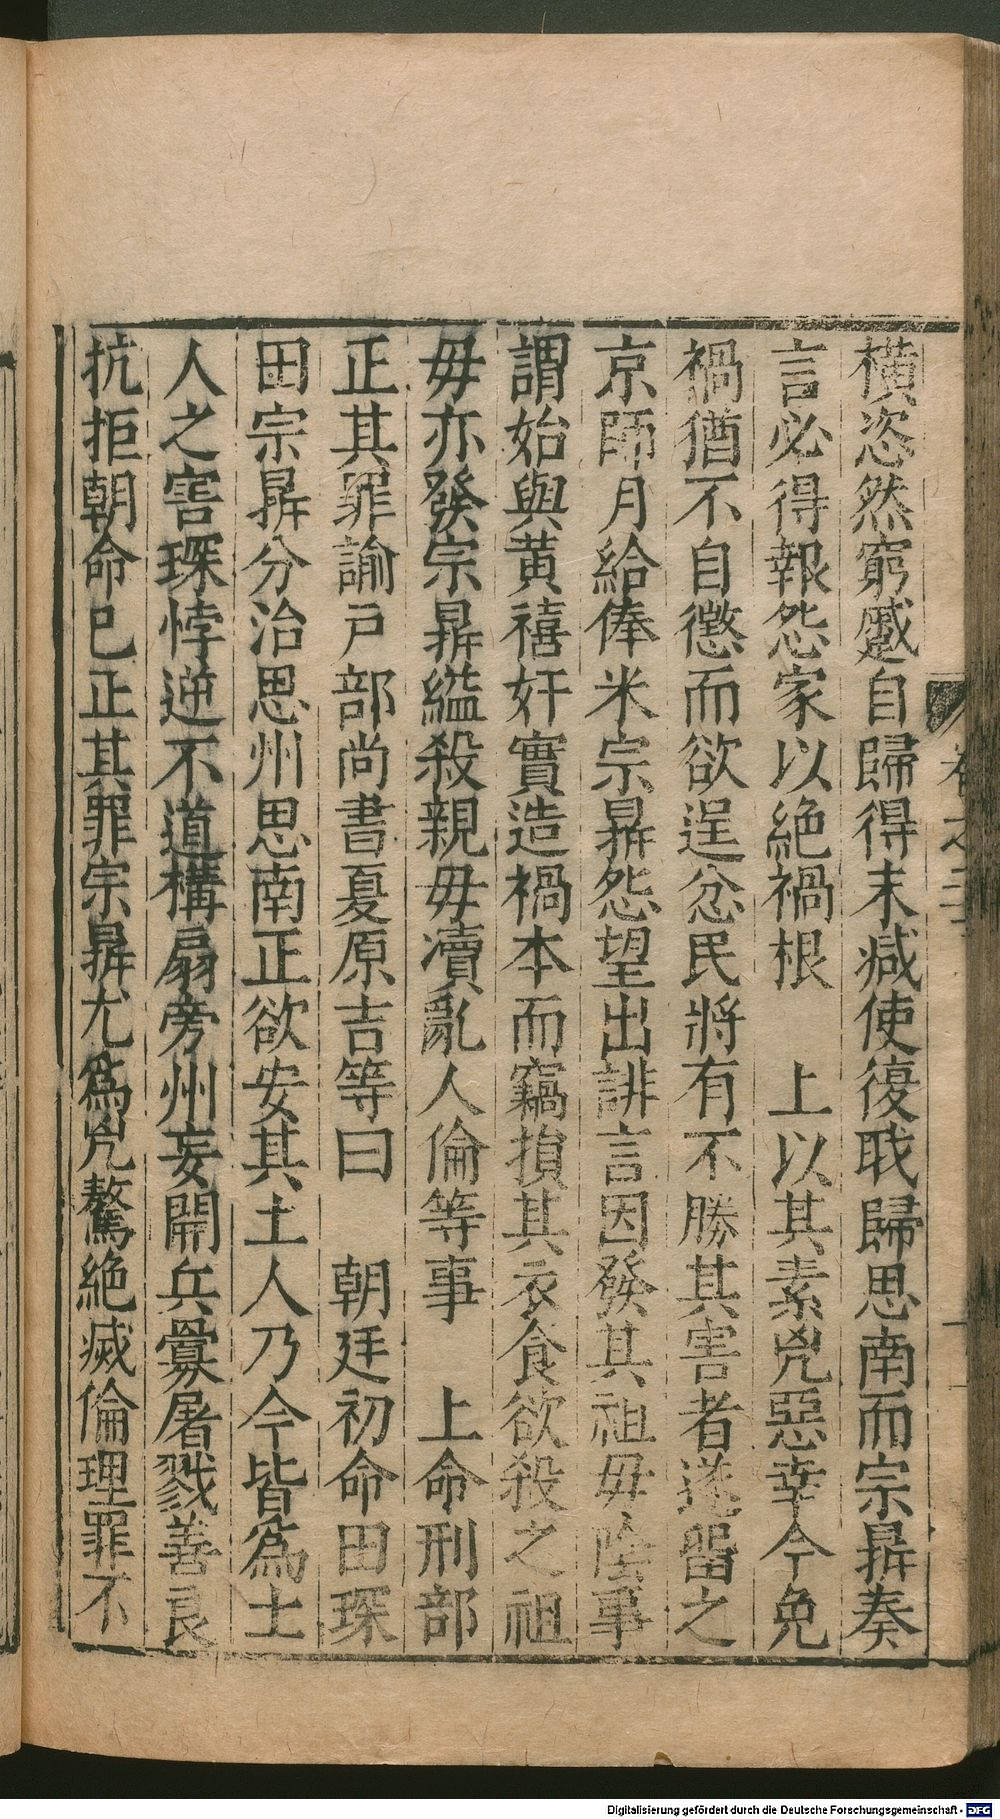 橫恣然窮蹙自歸得末减使復職歸思南而宗鼎奏
言必得報怨家以絶禍根　上以其素兇惡幸今免
禍猶不自懲而欲逞忿民將有不勝其害者遂留之
京師月給俸米宗鼎怨望出誹言因發其祖毋陰事
謂始與黃禧奸實造禍本而竊損其衣食欲殺之祖
毋亦發宗鼎縊殺親毋瀆亂人倫等事　上命刑部
正其罪諭戶部尚書夏原吉等曰　朝廷初命田琛
田宗鼎分治思州思南正欲安其土人乃今皆爲土
人之害琛悖逆不道構扇旁州妄開兵釁屠戮善良
抗拒朝命已正其罪宗鼎尤爲兇驁絶滅倫理罪不
卷之三
一
Digitalisierung gefördert durch die Deutsche Forschungsgemeinschaft - DFG